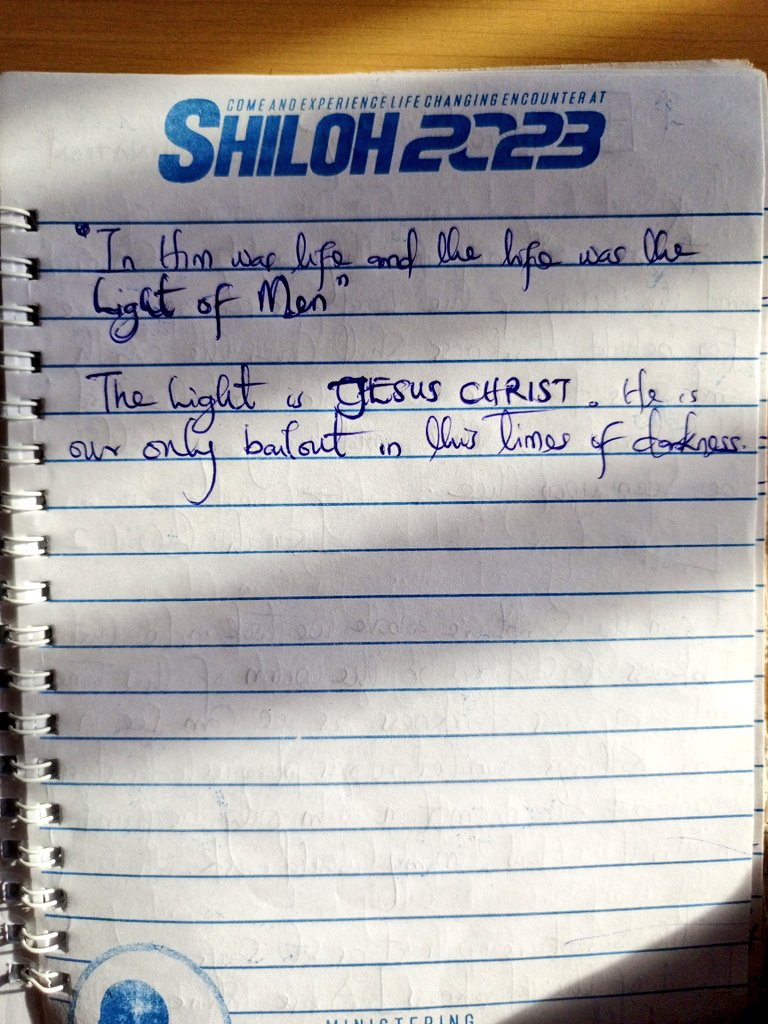 COME AND EXPERIENCE LIFE CHANGING ENCOUNTER AT
SHILOH 2023
"In Him was life and the life was the
Light of Men"
The Light is JESUS CHRIST. He is
our only bailout in this Times of darkness.
MINISTERING